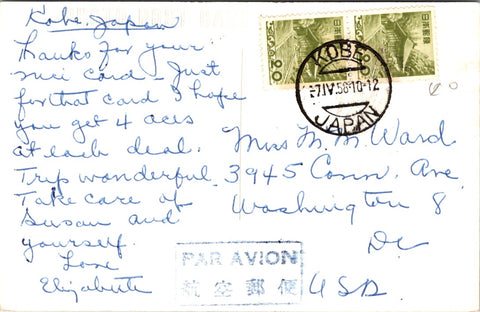 Kobe, Japan
Thanks for your
nice card - Just
for that card I hope
you get 4 aces
at each deal.
Trip wonderful.
Take care of
Susan and
yourself.
Love
Elizabeth
日本郵便
日本郵便
KOBE
-7.IV.56.10-12
JAPAN
Miss M. M. Ward
3945 Conn. Ave.
Washington 8
DC
USA
PAR AVION
航空郵便